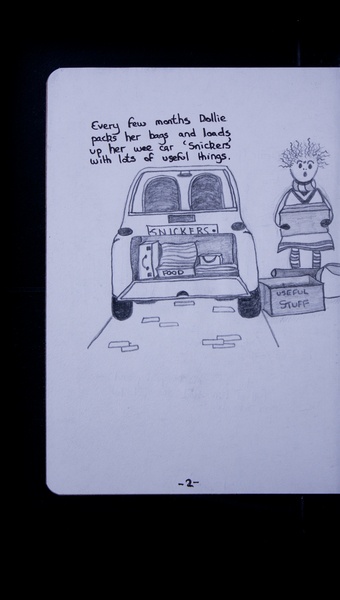 Every few months Dollie
packs her bags and loads
up her wee car 'Snickers'
with lots of useful things.
SNICKERS
FOOD
USEFUL
STUFF
-2-